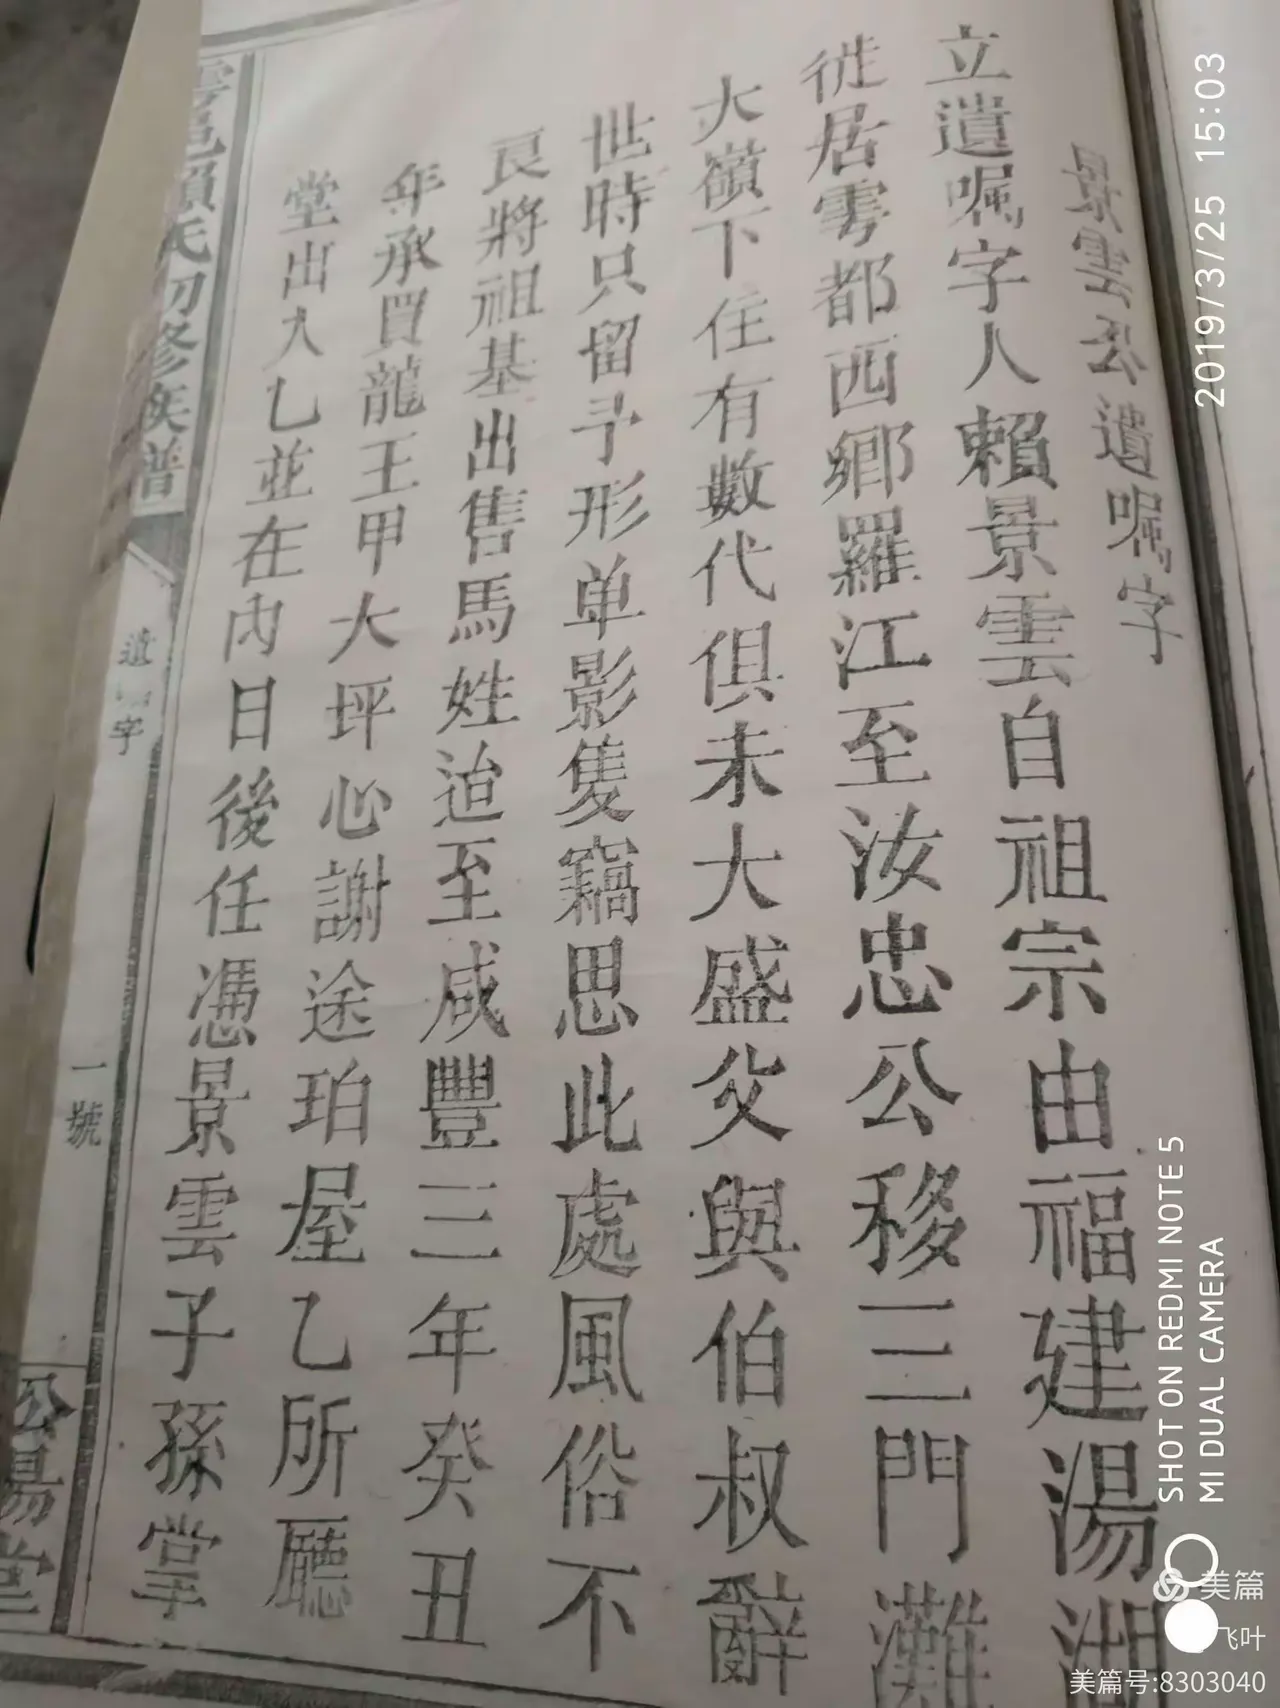 景雲公遺嘱字
立遺嘱字人賴景雲自祖宗由福建湯湖
徙居雩都西鄉羅江至汝忠公移三門灘
大嶺下住有數代俱未大盛父與伯叔辭
世時只留予形单影隻竊思此處風俗不
良將祖基出售馬姓迨至咸豐三年癸丑
年承買龍王甲大坪心謝途珀屋乙所廳
堂出入乙並在內日後任憑景雲子孫掌
雩邑賴氏初修族譜
遺 字
一號
2019/3/25 15:03
SHOT ON REDMI NOTE 5
MI DUAL CAMERA
美篇
飞叶
美篇号:8303040